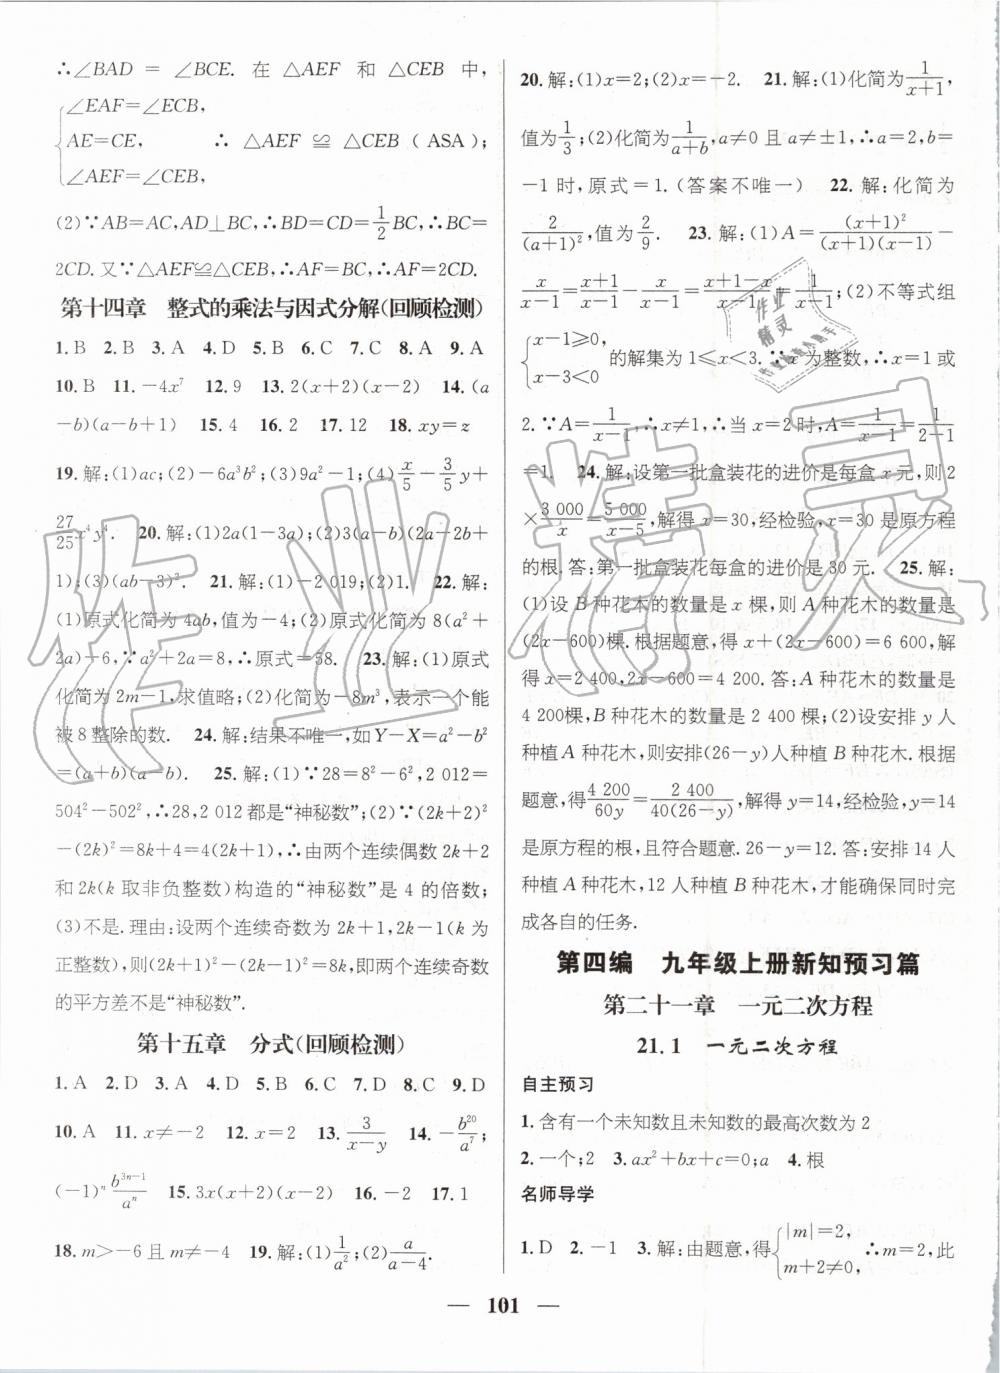 ∴∠BAD = ∠BCE. 在 △AEF 和 △CEB 中,
{∠EAF=∠ECB,
AE=CE, ∴ △AEF ≌ △CEB ( ASA );
∠AEF=∠CEB,
(2)∵AB=AC,AD⊥BC,∴BD=CD=1/2BC,∴BC=
2CD.又∵△AEF≌△CEB,∴AF=BC,∴AF=2CD.
第十四章 整式的乘法与因式分解(回顾检测)
1. B 2. B 3. A 4. D 5. B 6. C 7. C 8. A 9. A
10. B 11. -4x⁷ 12. 9 13. 2(x+2)(x-2) 14. (a
-b)(a-b+1) 15. 4 16. 2 17. 12 18. xy=z
19. 解:(1)ac;(2)-6a³b²;(3)9a²-1;(4)x/5-3/5y+
27/25x⁴y⁴. 20. 解:(1)2a(1-3a);(2)3(a-b)(2a-2b+
1);(3)(ab-3)². 21. 解:(1)-2 019;(2)1. 22. 解:
(1)原式化简为4ab,值为-4;(2)原式化简为8(a²+
2a)-6,∵a²+2a=8,∴原式=58. 23. 解:(1)原式
化简为2m-1,求值略;(2)化简为-8m³,表示一个能
被8整除的数. 24. 解:结果不唯一,如Y-X=a²-b²
=(a+b)(a-b). 25. 解:(1)∵28=8²-6²,2 012=
504²-502²,∴28,2 012都是“神秘数”;(2)∵(2k+2)²
-(2k)²=8k+4=4(2k+1),∴由两个连续偶数2k+2
和2k(k取非负整数)构造的“神秘数”是4的倍数;
(3)不是.理由:设两个连续奇数为2k+1,2k-1(k为
正整数),则(2k+1)²-(2k-1)²=8k,即两个连续奇数
的平方差不是“神秘数”.
第十五章 分式(回顾检测)
1. A 2. D 3. A 4. D 5. B 6. C 7. D 8. C 9. D
10. A 11. x≠-2 12. x=2 13. 3/(x-y) 14. -b²⁰/a⁷;
(-1)ⁿ b³ⁿ⁻¹/aⁿ 15. 3x(x+2)(x-2) 16. -2 17. 1
18. m>-6且m≠-4 19. 解:(1)1/a²;(2)a/(a-4).
20. 解:(1)x=2;(2)x=-2. 21. 解:(1)化简为1/(x+1),
值为1/3;(2)化简为1/(a+b),a≠0且a≠±1,∴a=2,b=
-1时,原式=1.(答案不唯一) 22. 解:化简为
2/(a+1)²,值为2/9. 23. 解:(1)A=(x+1)²/((x+1)(x-1))-
x/(x-1)=(x+1)/(x-1)-x/(x-1)=(x+1-x)/(x-1)=1/(x-1);(2)不等式组
{x-1≥0, x-3<0 的解集为1≤x<3.∵x为整数,∴x=1或
2.∵A=1/(x-1),∴x≠1,∴当x=2时,A=1/(x-1)=1/(2-1)
=1. 24. 解:设第一批盒装花的进价是每盒x元,则2
×3 000/x=5 000/(x-5),解得x=30,经检验,x=30是原方程
的根.答:第一批盒装花每盒的进价是30元. 25. 解:
(1)设B种花木的数量是x棵,则A种花木的数量是
(2x-600)棵.根据题意,得x+(2x-600)=6 600,解
得x=2 400,2x-600=4 200.答:A种花木的数量是
4 200棵,B种花木的数量是2 400棵;(2)设安排y人
种植A种花木,则安排(26-y)人种植B种花木.根据
题意,得4 200/60y=2 400/40(26-y),解得y=14,经检验,y=14
是原方程的根,且符合题意.26-y=12.答:安排14人
种植A种花木,12人种植B种花木,才能确保同时完
成各自的任务.
第四编 九年级上册新知预习篇
第二十一章 一元二次方程
21.1 一元二次方程
自主预习
1. 含有一个未知数且未知数的最高次数为2
2. 一个;2 3. ax²+bx+c=0;a 4. 根
名师导学
1. D 2. -1 3. 解:由题意,得{|m|=2, m+2≠0, ∴m=2,此
— 101 —
作业精灵